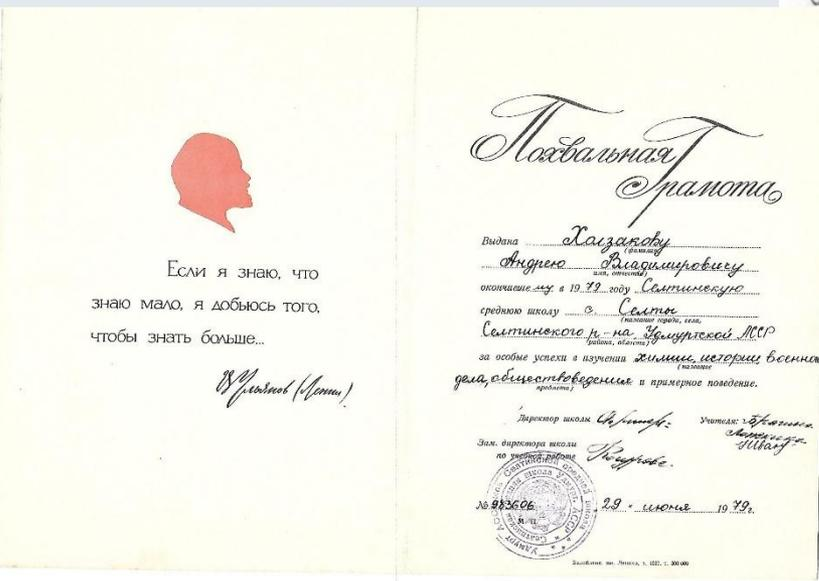 Если я знаю, что
знаю мало, я добьюсь того,
чтобы знать больше...
В Ульянов (Ленин)
Похвальная
Грамота
Выдана Холзакову
(фамилия)
Андрею Владимировичу
имя, отчество)
окончившему в 1979 году Селтинскую
среднюю школу с Селты
(название города, села,
Селтинского р-на, Удмуртской АССР
района, области)
за особые успехи в изучении химии, истории, военного
(название
дела, обществоведения и примерное поведение.
предмета)
Директор школы
Учителя:
Зам. директора школы
по учебной работе
№ 983606 29 июня 1979г.
М. П.